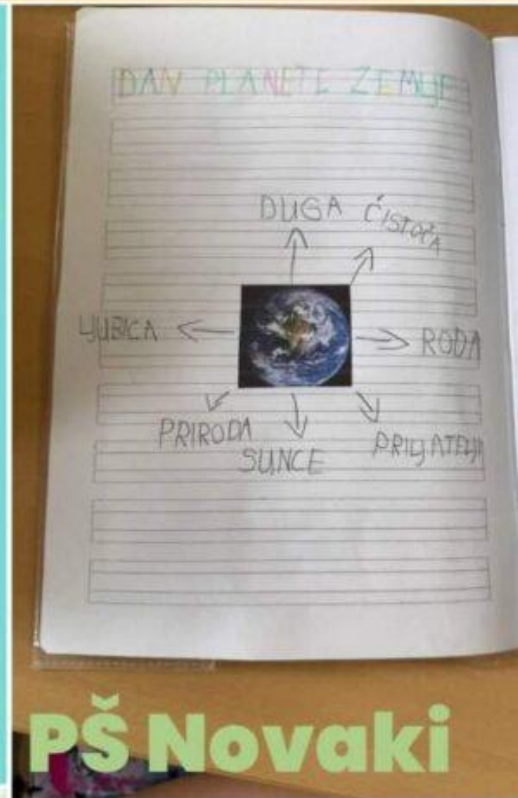 DAN PLANETE ZEMLJE
DUGA
ČISTOĆA
LJUBICA
RODA
PRIRODA
SUNCE
PRIJATELJI
PŠ Novaki